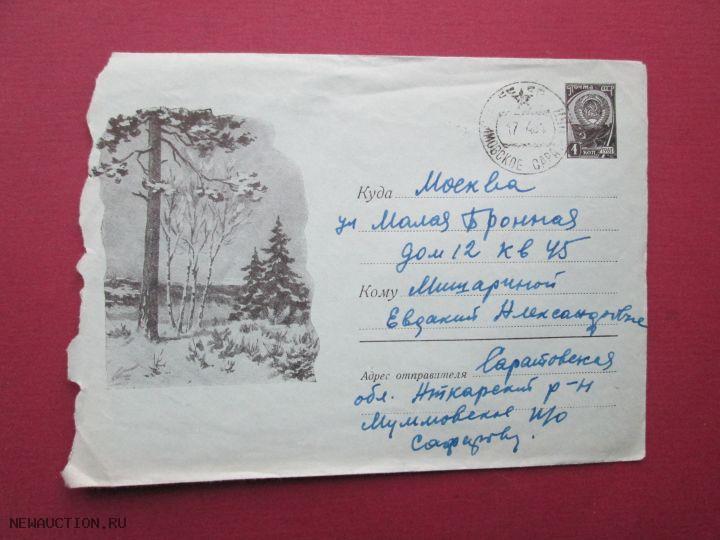 Почта СССР
4 коп
МОВСКОЕ САРАТ
Куда Москва
ул Малая Бронная
дом 12 кв 45
Кому Мишариной
Евдакии Александровне
Адрес отправителя Саратовская
обл. Аткарский р-н
Муммовское п/о
NEWAUCTION.RU